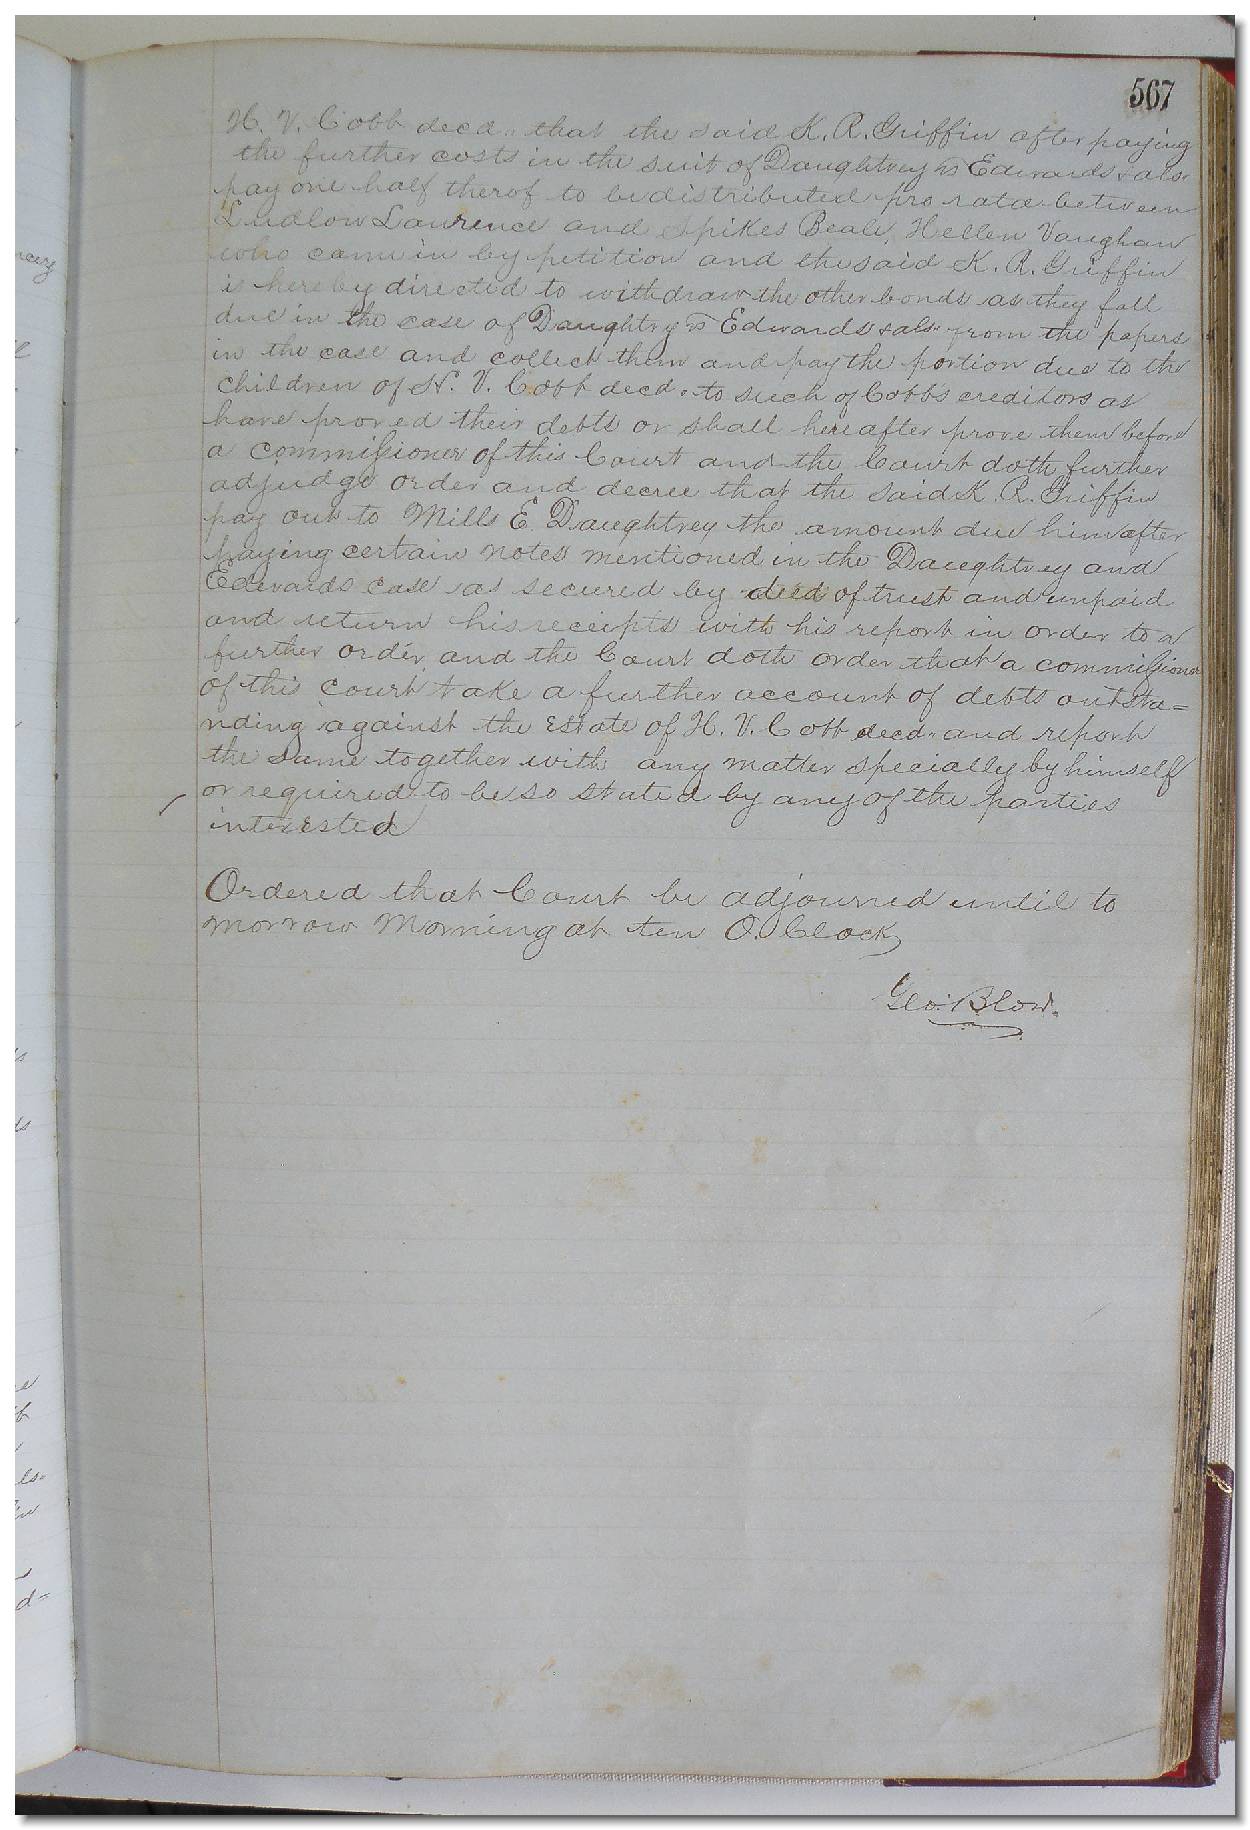 567
H. V. Cobb decd. that the said K. R. Griffin after paying
the further costs in the suit of Daughtrey vs Edwards & als
pay one half therof to be distributed pro rata between
Ludlow Laurence and Spikes Beale, Hellen Vaughan
who came in by petition and the said K. R. Griffin
is hereby directed to withdraw the other bonds as they fall
due in the case of Daughtry vs Edwards & als from the papers
in the case and collect them and pay the portion due to the
children of H. V. Cobb decd. to such of Cobbs creditors as
have proved their debts or shall hereafter prove them before
a commissioner of this Court and the Court doth further
adjudge order and decree that the said K. R. Griffin
pay out to Mills E. Daughtrey the amount due him after
paying certain notes mentioned in the Daughtrey and
Edwards case as secured by deed of trust and unpaid
and return his receipts with his report in order to a
further order and the Court doth order that a commissioner
of this court take a further account of debts outsta=
nding against the Estate of H. V. Cobb decd. and report
the same together with any matter specially by himself
or required to be so stated by any of the parties
interested
Ordered that Court be adjourned until to
morrow Morning at ten O. Clock
Geo. Blow.